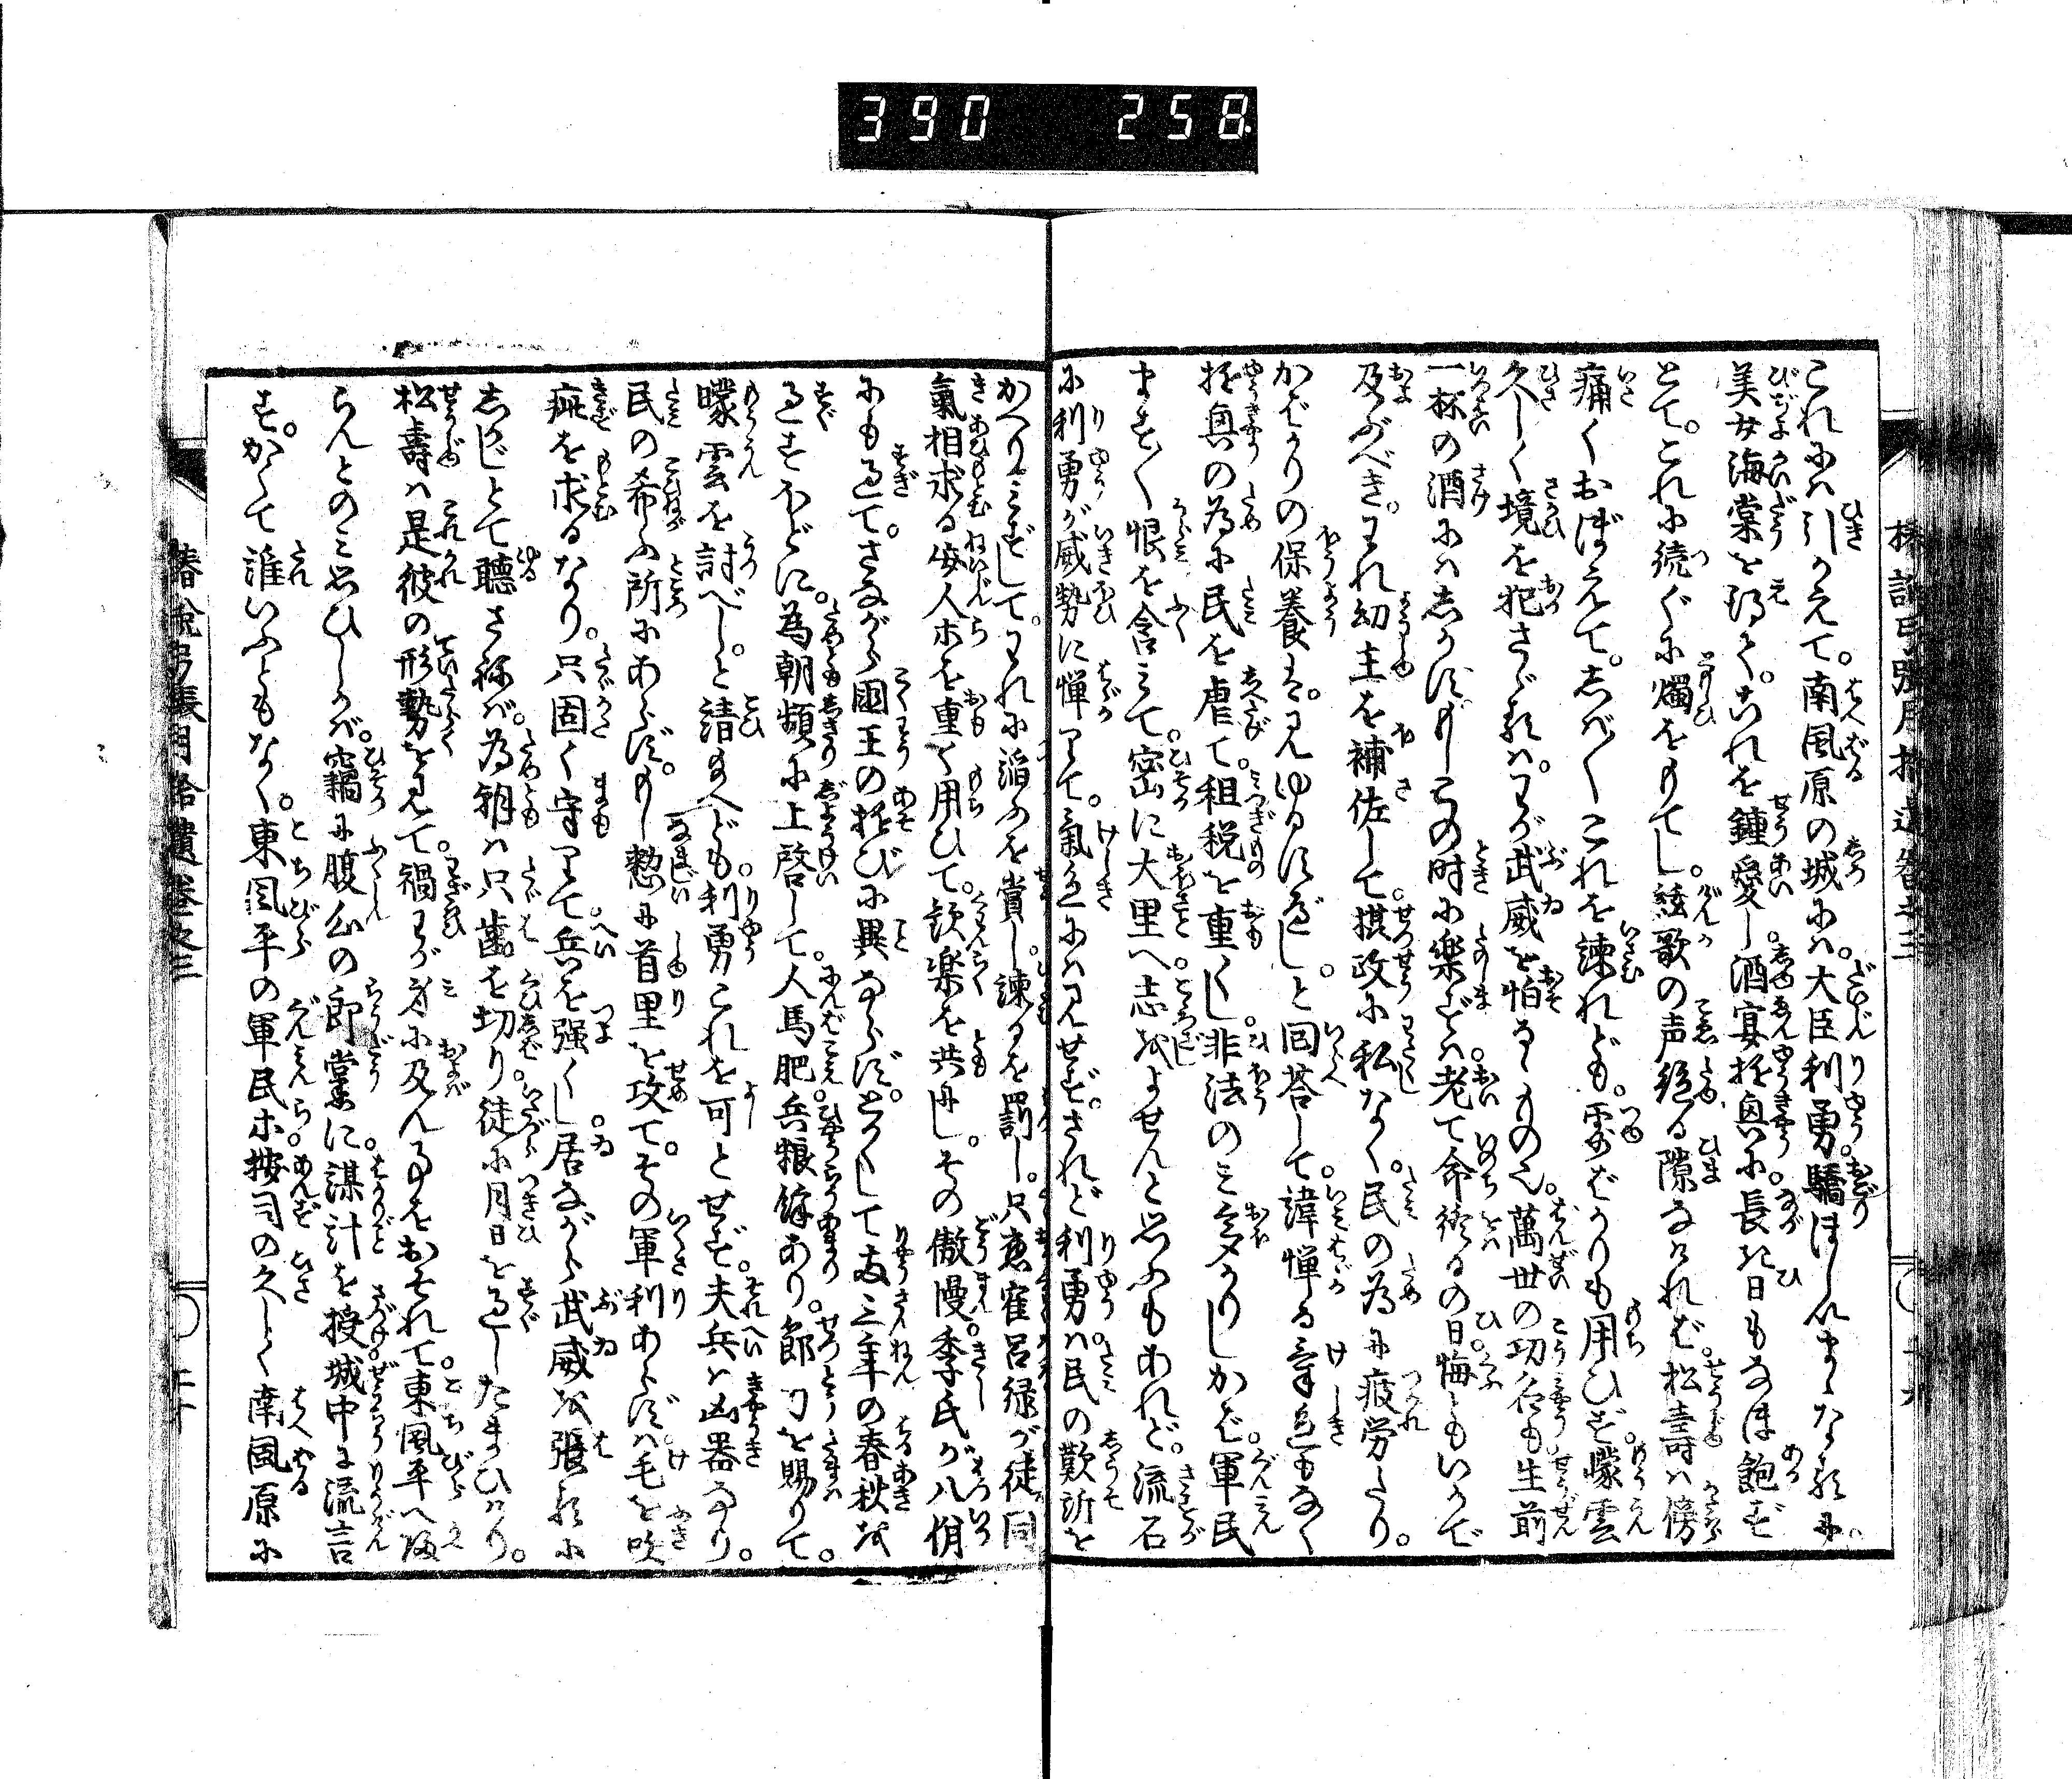 390 258
これに引かえて。南風原の城には。大臣利勇。驕ほしきまゝなるに。
美女海棠を得て。これを鍾愛し。酒宴遊興に。長き日もなほ飽ず
とて。これに続ぐに燭をもてし。絃歌の声絶る隙なければ。松壽は傍
痛くおぼえて。しば〳〵これを諫れども。露ばかりも用ひず。曚雲
久しく境を犯さゞるは。わが武威を怕るゝもの也。萬世の功名も生前
一杯の酒にはしかず。もしこの時に樂ずは。老て命終るの日。悔ともいかで
及ぶべき。われ幼主を補佐して。摂政に私なく。民の為に疲労たり。
かばかりの保養は。見ゆるすべし。と回答して。諱憚る気色もなく
遊興の為に民を虐て。租税を重くし。非法のミ多かりしかば。軍民
ます〳〵恨を含ミて。密に大里へ志をよせんと思ふもあれど。流石
に利勇が威勢に憚りて。氣色には見せず。されど利勇は。民の歎訴を
かへりミずして。われに諂ふを賞し。諫るを罰し。只恵宦呂緑が徒同
氣相求る佞人ホを重く用ひて。歓樂を共にし。その傲慢。季氏が八佾
にも過て。さながら國王の遊びに異ならず。とかくして両三年の春秋を
過すほどに。為朝頻に上啓して。人馬肥。兵粮餘あり。節刀を賜りて。
曚雲を討べし。と請給へども。利勇これを可とせず。夫兵は凶器なり。
民の希ふ所にあらず。もし憖に首里を攻て。その軍利あらずは毛を吹
疵を求るなり。只固く守りて兵を强くし。居ながら武威を張るに
しかじとて聴さねば。為朝は只齒を切り。徒に月日を過したまひけり。
松壽は是彼の形勢を見て。禍わが身に及ん事をおそれて。東風平へ皈
らんとのミ思ひしかば。竊に腹心の郎黨に。謀計を授。城中に流言
す。かくて誰いふともなく。東風平の軍民ホ。按司の久しく南風原に
椿說弓張月拾遺卷之三